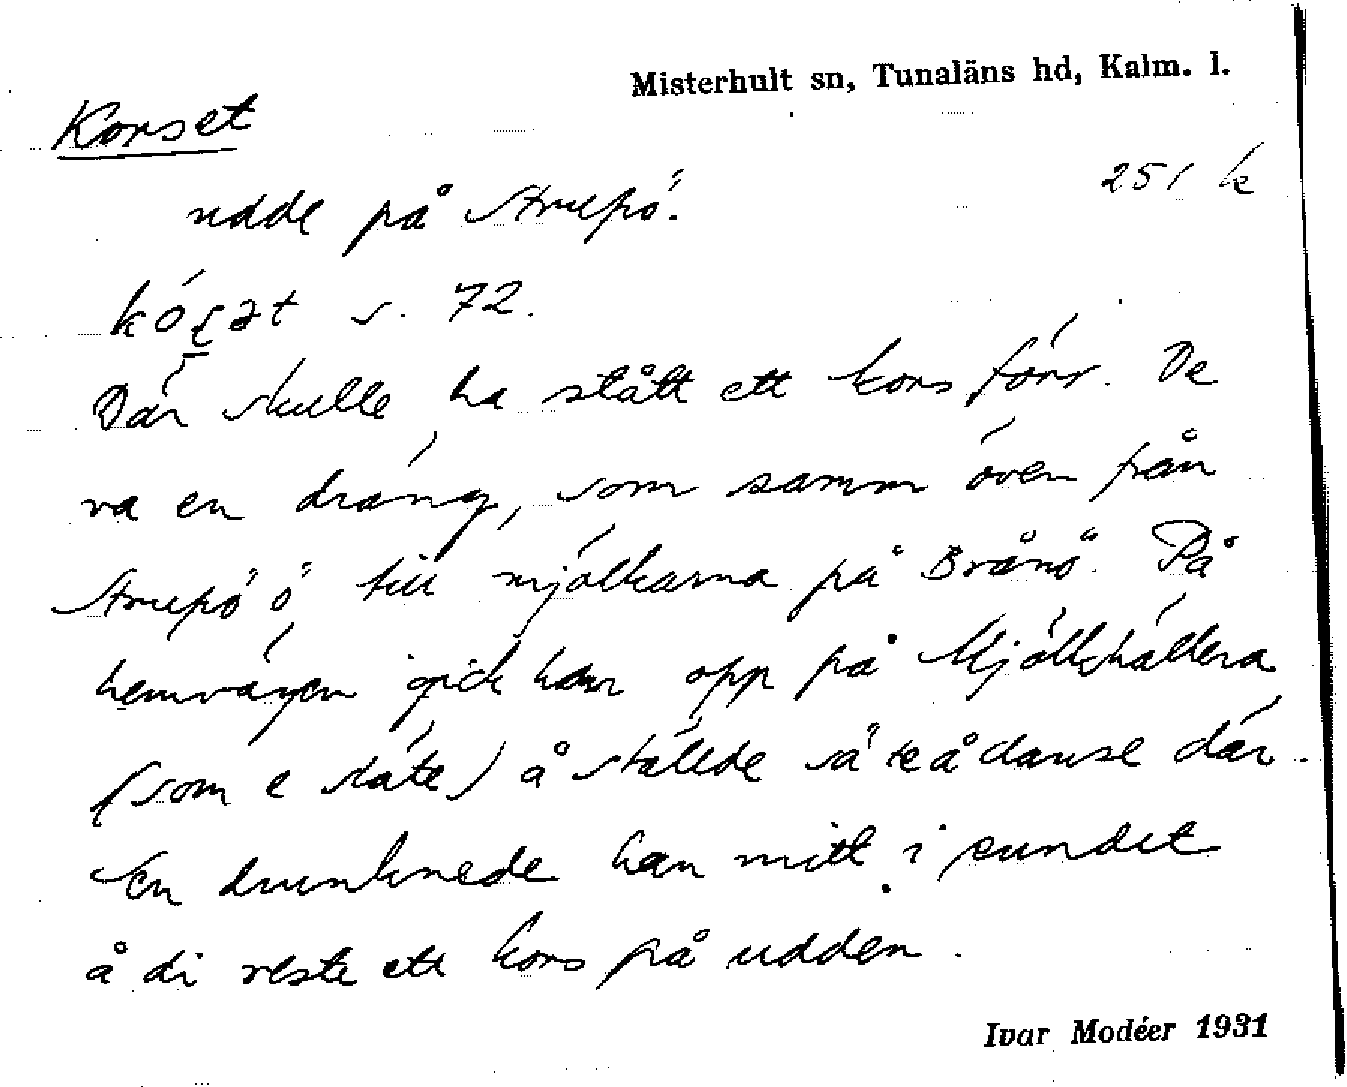 Misterhult sn, Tunaläns hd, Kalm. l.
Korset
251 k
udde på Strupö.
s. 72.
Där skulle ha stått ett kors förr. De
va en dräng, som samm över från
Strupö ö till mjölkarna på Brånö. På
hemvägen gick han opp på Mjölkhällera
(som e släte) å ställde sä te å danse där.
Sen drunknede han mitt i sundet
å di reste ett kors på udden.
Ivar Modéer 1931